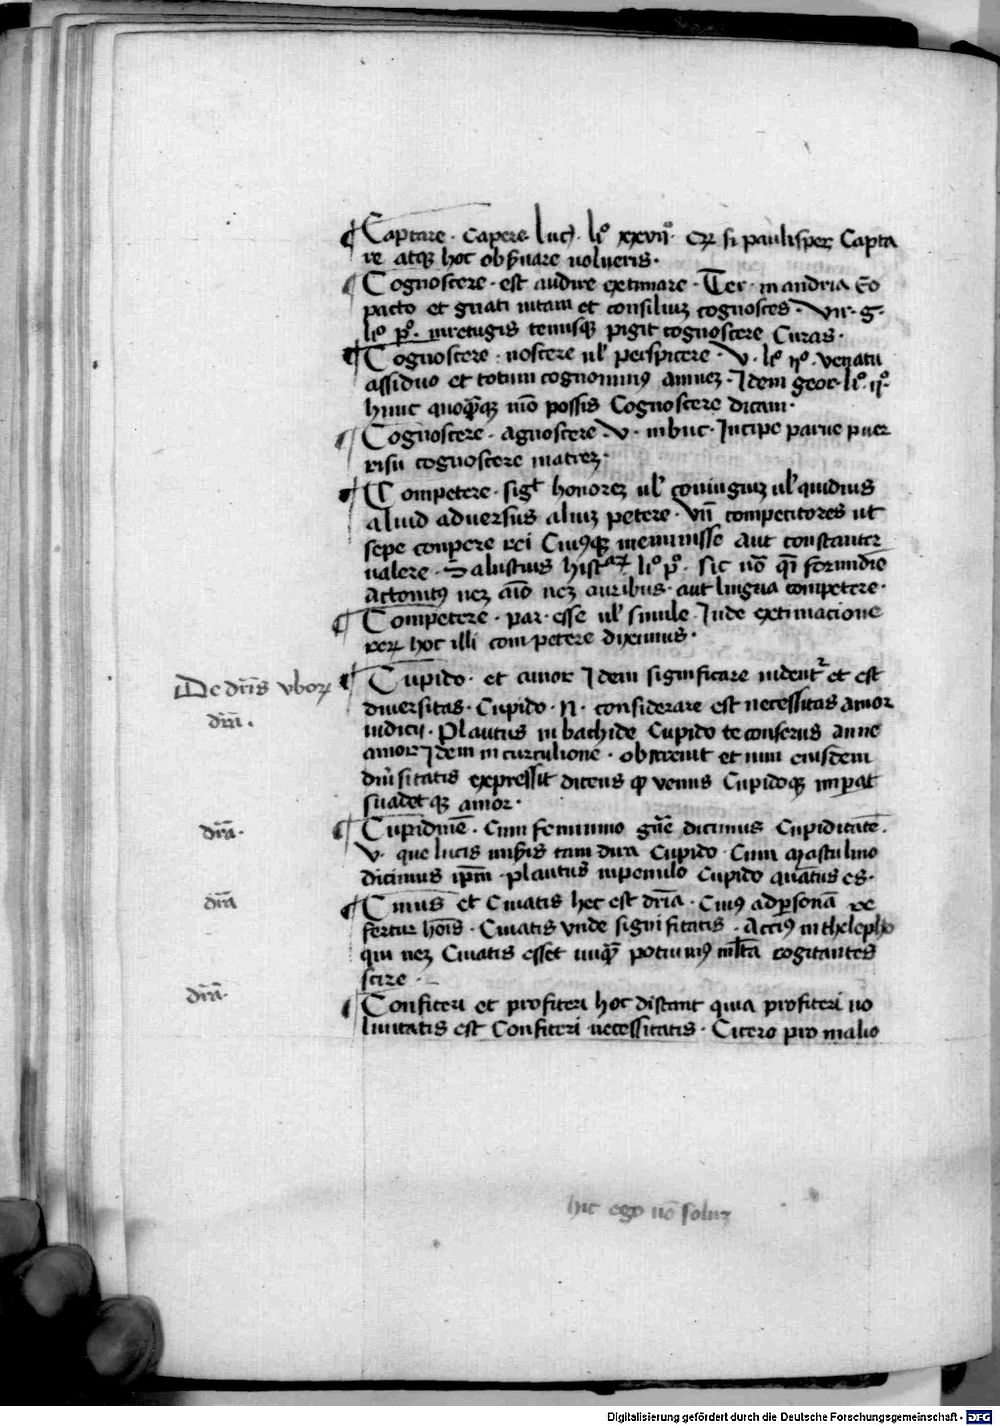 Captare · Capere luc̃ · liº xxviiº · Qꝛ si paulisper Capta
re atqꝫ hoc obẜuare volueris ·
Cognoscere · est audire extimare · Ter · in andria Cõ
pacto et gnati vitam et consiliuꝫ cognosces · Vir · g ·
liº pº · inretugis tenusqꝫ pigit cognoscere Curas ·
Cognoscere · noscere ul̕ perspicere · V · liº iiº · venatu
assiduo et totum cognouimꝰ amneꝫ · Idem geor · liº · iiº
hinc quoꝙqꝫ mõ possis Cognoscere dicam ·
Cognoscere · agnoscere · V · inbuc · Incipe parue puer
risu cognoscere matreꝫ ·
Competere · sigͭ honoreꝫ ul̕ coniugiuꝫ ul̕ quiduis
aliud aduersus aliuꝫ petere · Vñ competitores ut
sepe conpere rei Cuiusqꝫ meminisse aut constanter
valere · Salustius hist liº pº · sic nõ qͥ formidie
Attonitꝰ neꝫ aĩo neꝫ auribus · aut lingua competere ·
Competere · par · esse ul̕ simile Inde extimacione
reꝝ hoc illi competere diximus ·
De dr̃is vboꝝ Cupido · et amor Idem significare videntʳ et est
dr̃ia · diuersitas · Cupido · N · considerare est necessitas amor
iudicii · Plautus in bachide Cupido te conferus anne
amor Idem in curculione · obsteruit et nim eiusdem
diu̕sitatis expressit dicens ꝙ venus Cupidoqꝫ imꝑat
suadetqꝫ amor ·
dr̃ia · Cupidinẽ · Cum feminino gñe dicimus Cupiditatẽ ·
V · que lucis mis̃is tam dira Cupido · Cum masculino
dicimus ip̃m · plautus inpenulo Cupido quãtus es ·
dr̃ia Ciuius et Ciuatis hec est dr̃ia · Ciuiꝰ adꝑsonã re
fertur hõis · Ciuatis vnde significatis · Acciꝰ in thelepho
qui neꝫ Ciuatis esset unꝙ̃ potuimꝰ ml̃ta cogitantes
scire ·
dr̃ia · Confiteri et profiteri hoc distant quia profiteri vo
luntatis est Confiteri necessitatis · Cicero pro malio
hic ego nõ soluꝫ
Digitalisierung gefördert durch die Deutsche Forschungsgemeinschaft · DFG